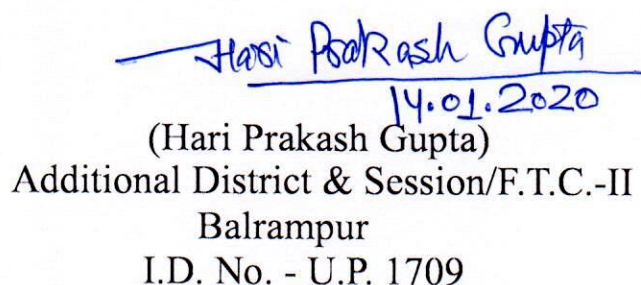 Hari Prakash Gupta
14.01.2020
(Hari Prakash Gupta)
Additional District & Session/F.T.C.-II
Balrampur
I.D. No. - U.P. 1709